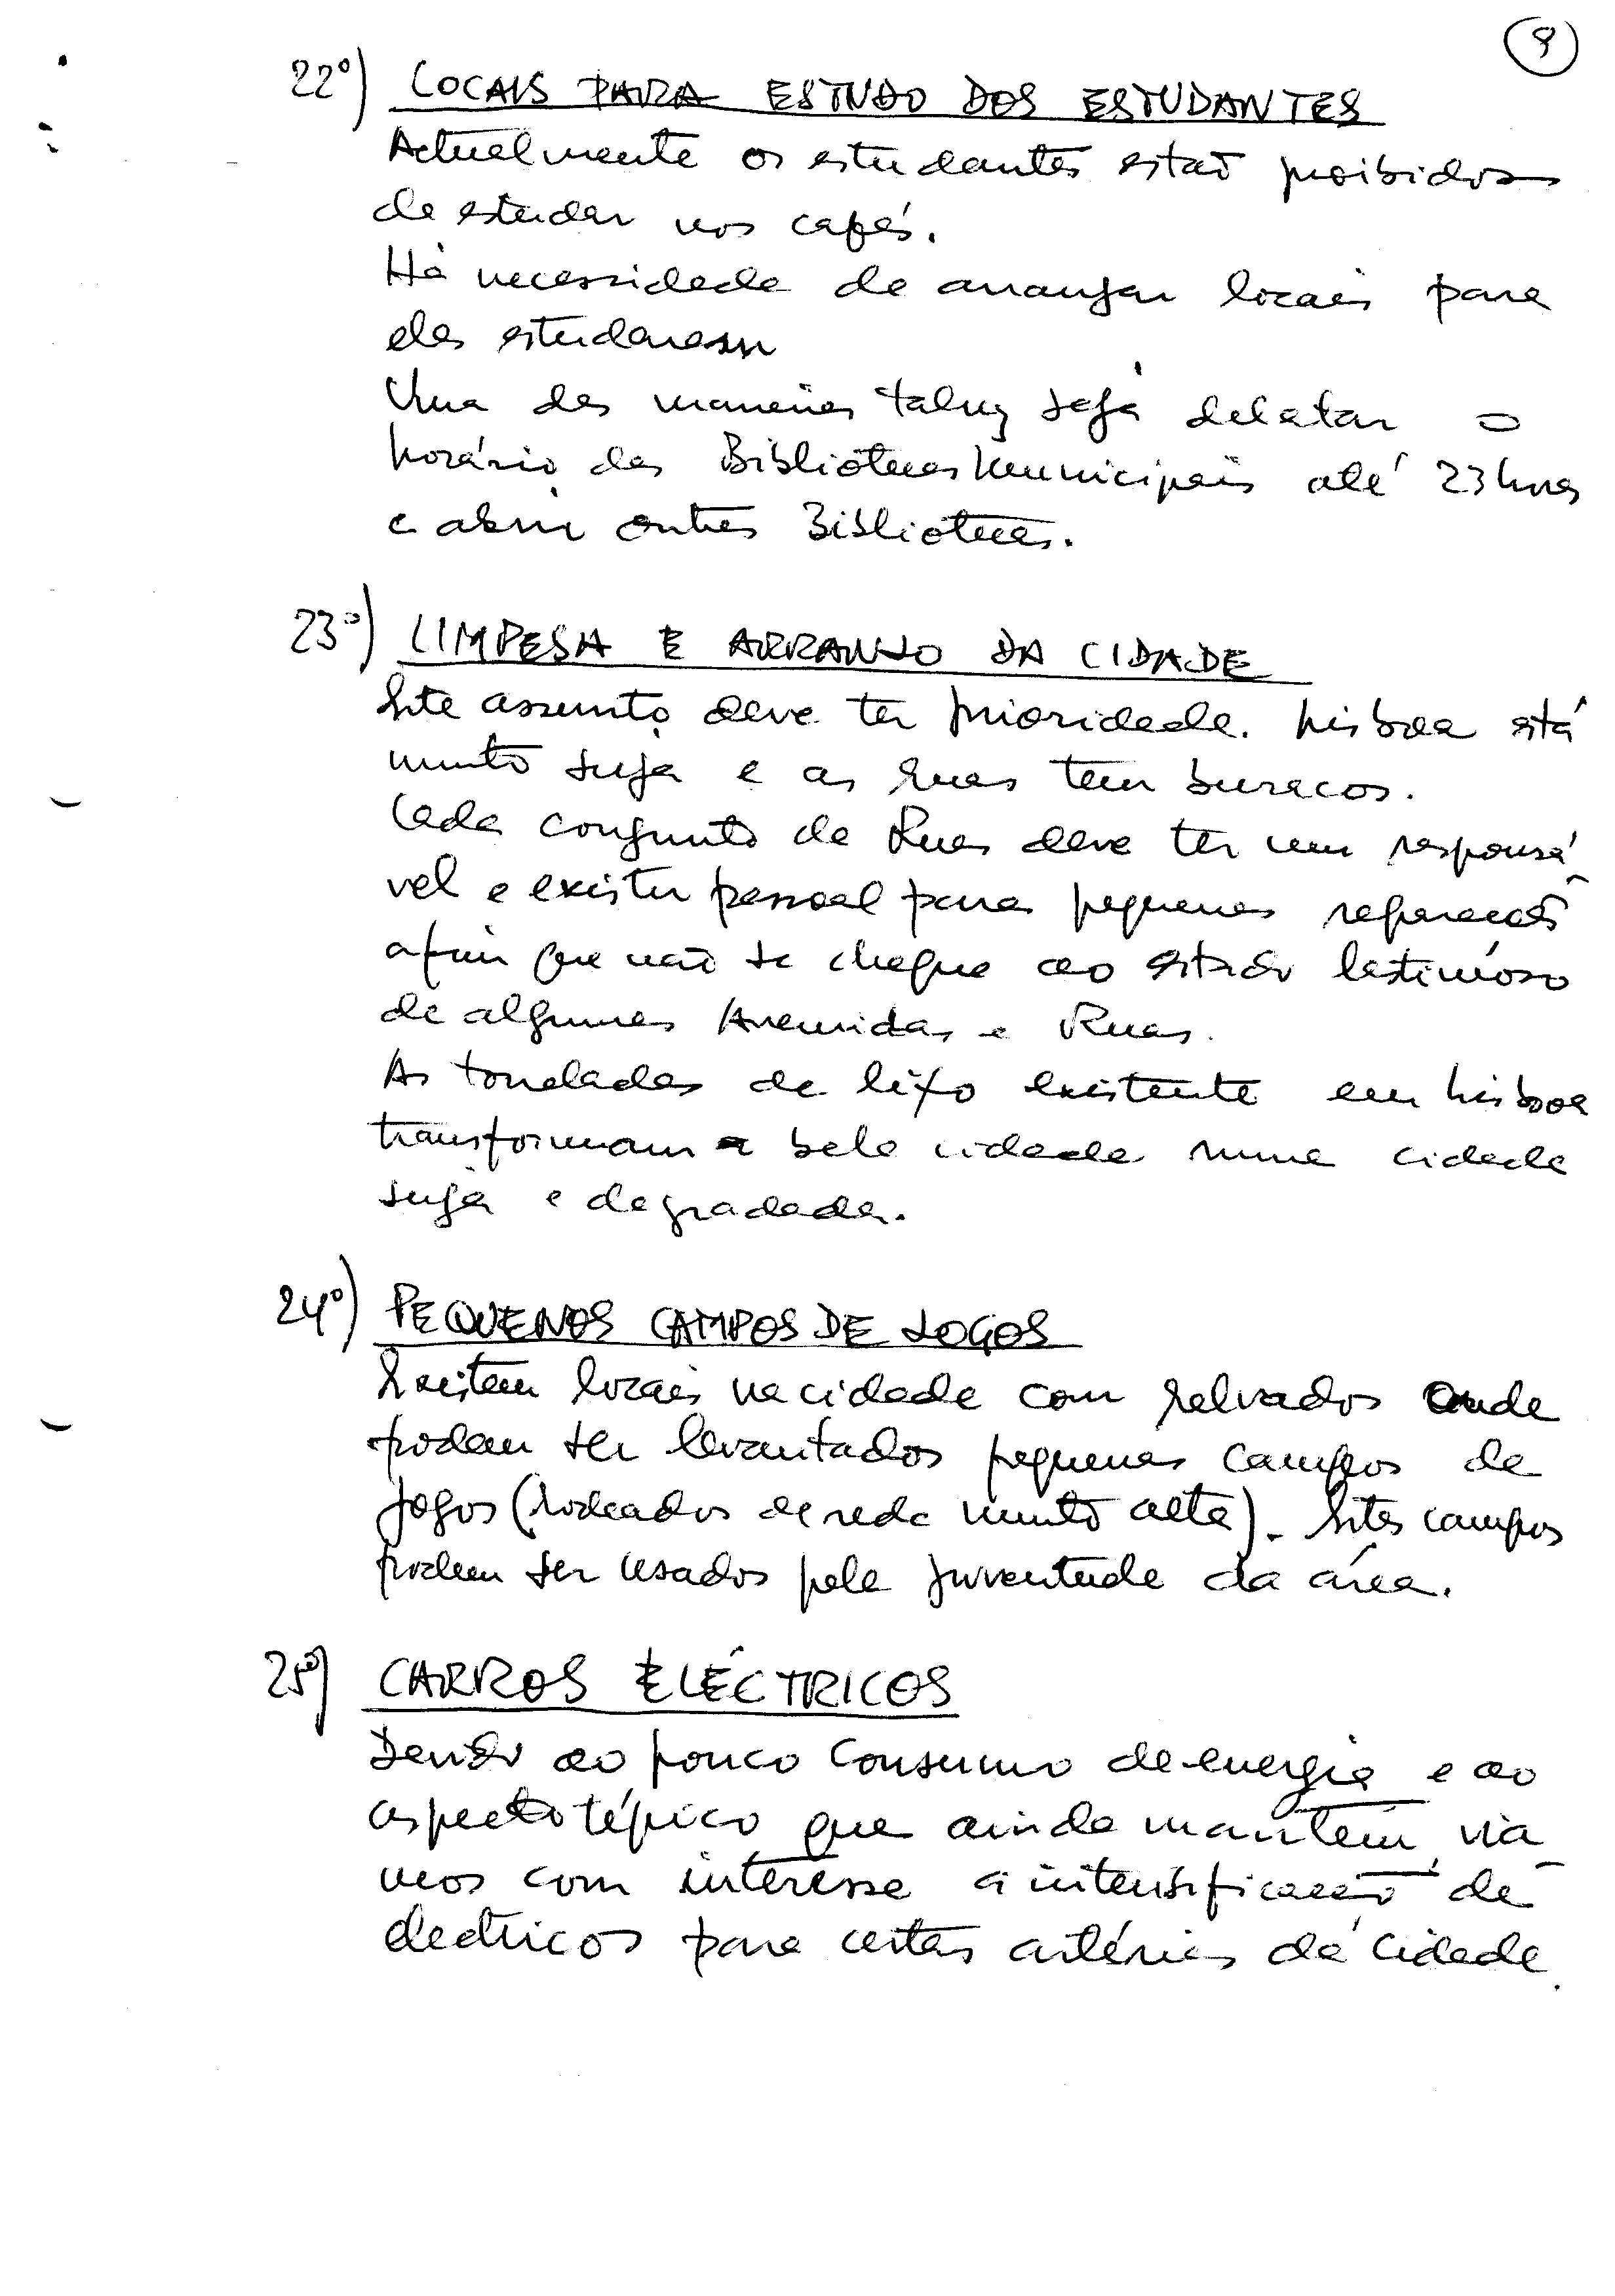 9
22º) LOCAIS PARA ESTUDO DOS ESTUDANTES
Actualmente os estudantes estão proibidos
de estudar nos cafés.
Há necessidade de arranjar locais para
eles estudarem
Uma das maneiras talvez seja dilatar o
horário das Bibliotecas Municipais até 23 horas
e abrir outras Bibliotecas.
23º) LIMPESA E ARRANJO DA CIDADE
Este assunto deve ter prioridade. Lisboa está
muito suja e as ruas tem buracos.
Cada conjunto de Ruas deve ter um responsá-
vel e existir pessoal para pequenas reparações
afim que não se chegue ao estado lastimoso
de algumas Avenidas e Ruas.
As toneladas de lixo existente em Lisboa
transformam a bela cidade numa cidade
suja e degradada.
24º) PEQUENOS CAMPOS DE JOGOS
Existem locais na cidade com relvados onde
podem ser levantados pequenos campos de
jogos (rodeados de rede muito alta). Estes campos
podem ser usados pela juventude da área.
25º) CARROS ELÉCTRICOS
Devido ao pouco consumo de energia e ao
aspecto típico que ainda mantém, vía
mos com interesse a intensificação de
eléctricos para certas artérias da cidade.